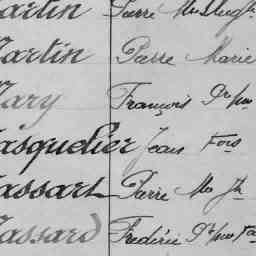 artin Pierre Me
artin Pierre Marie
ary François
asquelier Jean Fois
assart Pierre Me Jh
assard Frédéric